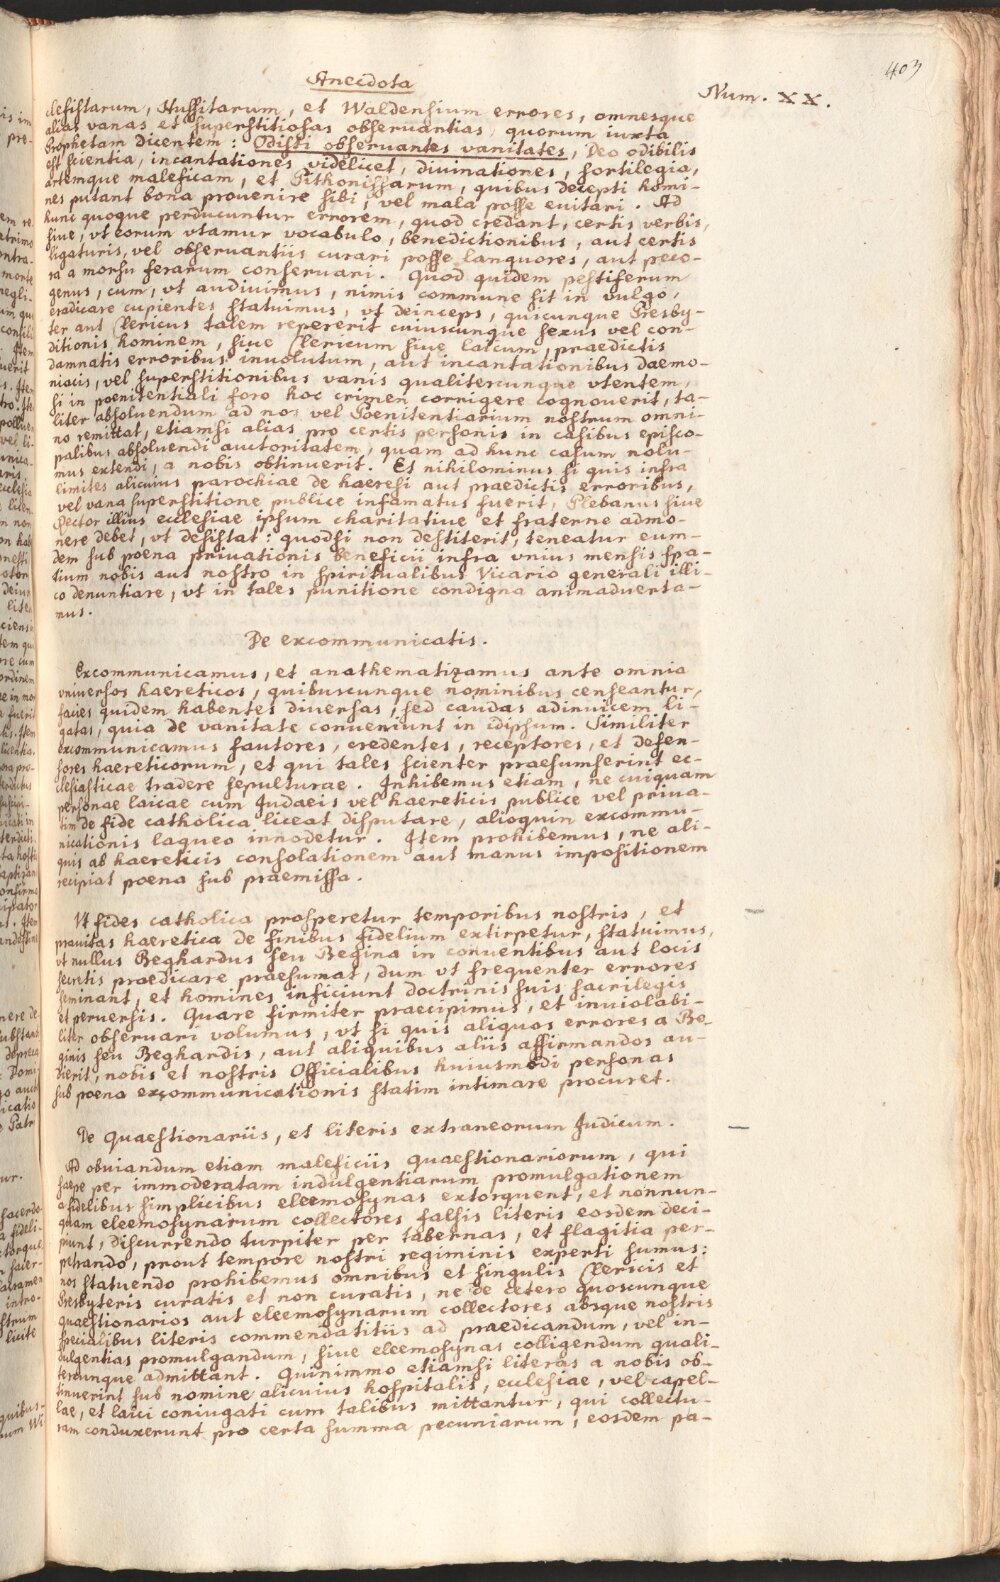 403
Anecdota
Num. XX.
clefistarum, Hussitarum, et Waldensium errores, omnesque
alias vanas et superstitiosas observantias, quorum iuxta
Prophetam dicentem: Odisti observantes vanitates, Deo odibilis
est scientia, incantationes videlicet, divinationes, sortilegia,
artemque maleficam, et Pithonissarum, quibus decepti homi-
nes putant bona provenire sibi, vel mala posse evitari. Ad
hunc quoque perducuntur errorem, quod credant, certis verbis,
sive, vt eorum vtamur vocabulo, benedictionibus, aut certis
ligaturis, vel observantiis curari posse languores, aut peco-
ra a morsu ferarum conservari. Quod quidem pestiferum
genus, cum, vt audivimus, nimis commune sit in vulgo,
eradicare cupientes statuimus, vt deinceps, quicunque Presby-
ter aut Clericus talem repererit cuiuscunque sexus vel con-
ditionis hominem, sive Clericum sive laicum, praedictis
damnatis erroribus involutum, aut incantationibus daemo-
niacis, vel superstitionibus vanis qualitercunque vtentem,
si in poenitentiali foro hoc crimen corrigere cognoverit, ta-
liter absolvendum ad nos vel Poenitentiarium nostrum omni-
no remittat, etiamsi alias pro certis personis in casibus episco-
palibus absolvendi auctoritatem, quam ad hunc casum nolu-
mus extendi, a nobis obtinuerit. Et nihilominus si quis infra
limites alicuius parochiae de haeresi aut praedictis erroribus,
vel vana superstitione publice infamatus fuerit, Plebanus sive
Rector illius ecclesiae ipsum charitative et fraterne admo-
nere debet, vt desistat: quodsi non destiterit, teneatur eum-
dem sub poena privationis beneficii infra vnius mensis spa-
tium nobis aut nostro in spiritualibus Vicario generali illi-
co denuntiare, vt in tales punitione condigna animaduerta-
mus.
De excommunicatis.
Excommunicamus, et anathematizamus ante omnia
vniversos haereticos, quibuscunque nominibus censeantur,
facies quidem habentes diversas, sed caudas adinvicem li-
gatas, quia de vanitate conveniunt in idipsum. Similiter
excommunicamus fautores, credentes, receptores, et defen-
sores haereticorum, et qui tales scienter praesumserint ec-
clesiasticae tradere sepulturae. Inhibemus etiam, ne cuiquam
personae laicae cum Judaeis vel haereticis publice vel priva-
tim de fide catholica liceat disputare, alioquin excommu-
nicationis laqueo innodetur. Item prohibemus, ne ali-
quis ab haereticis consolationem aut manus impositionem
recipiat poena sub praemissa.
Vt fides catholica prosperetur temporibus nostris, et
pravitas haeretica de finibus fidelium extirpetur, statuimus,
vt nullus Beghardus seu Begina in conventibus aut locis
secretis praedicare praesumat, dum vt frequenter errores
seminant, et homines inficiunt doctrinis suis sacrilegis
et perversis. Quare firmiter praecipimus, et inviolabi-
liter observari volumus, vt si quis aliquos errores a Be-
ginis seu Beghardis, aut aliquibus aliis affirmandos au-
dierit, nobis et nostris Officialibus huiusmodi personas
sub poena excommunicationis statim intimare procuret.
De Quaestionariis, et literis extraneorum Judicum.
Ad obviandum etiam maleficiis Quaestionariorum, qui
saepe per immoderatam indulgentiarum promulgationem
a fidelibus simplicibus eleemosynas extorquent, et nonnun-
quam eleemosynarum collectores falsis literis eosdem deci-
piunt, discurrendo turpiter per tabernas, et flagitia per-
petrando, prout tempore nostri regiminis experti sumus:
nos statuendo prohibemus omnibus et singulis Clericis et
Presbyteris curatis et non curatis, ne de cetero quoscunque
Quaestionarios aut eleemosynarum collectores absque nostris
specialibus literis commendatitiis ad praedicandum, vel in-
dulgentias promulgandum, sive eleemosynas colligendum quali-
tercunque admittant. Quinimmo etiamsi literas a nobis ob-
tinuerint sub nomine alicuius hospitalis, ecclesiae, vel capel-
lae, et laici coniugati cum talibus mittantur, qui collectu-
ram conduxerunt pro certa summa pecuniarum, eosdem pa-